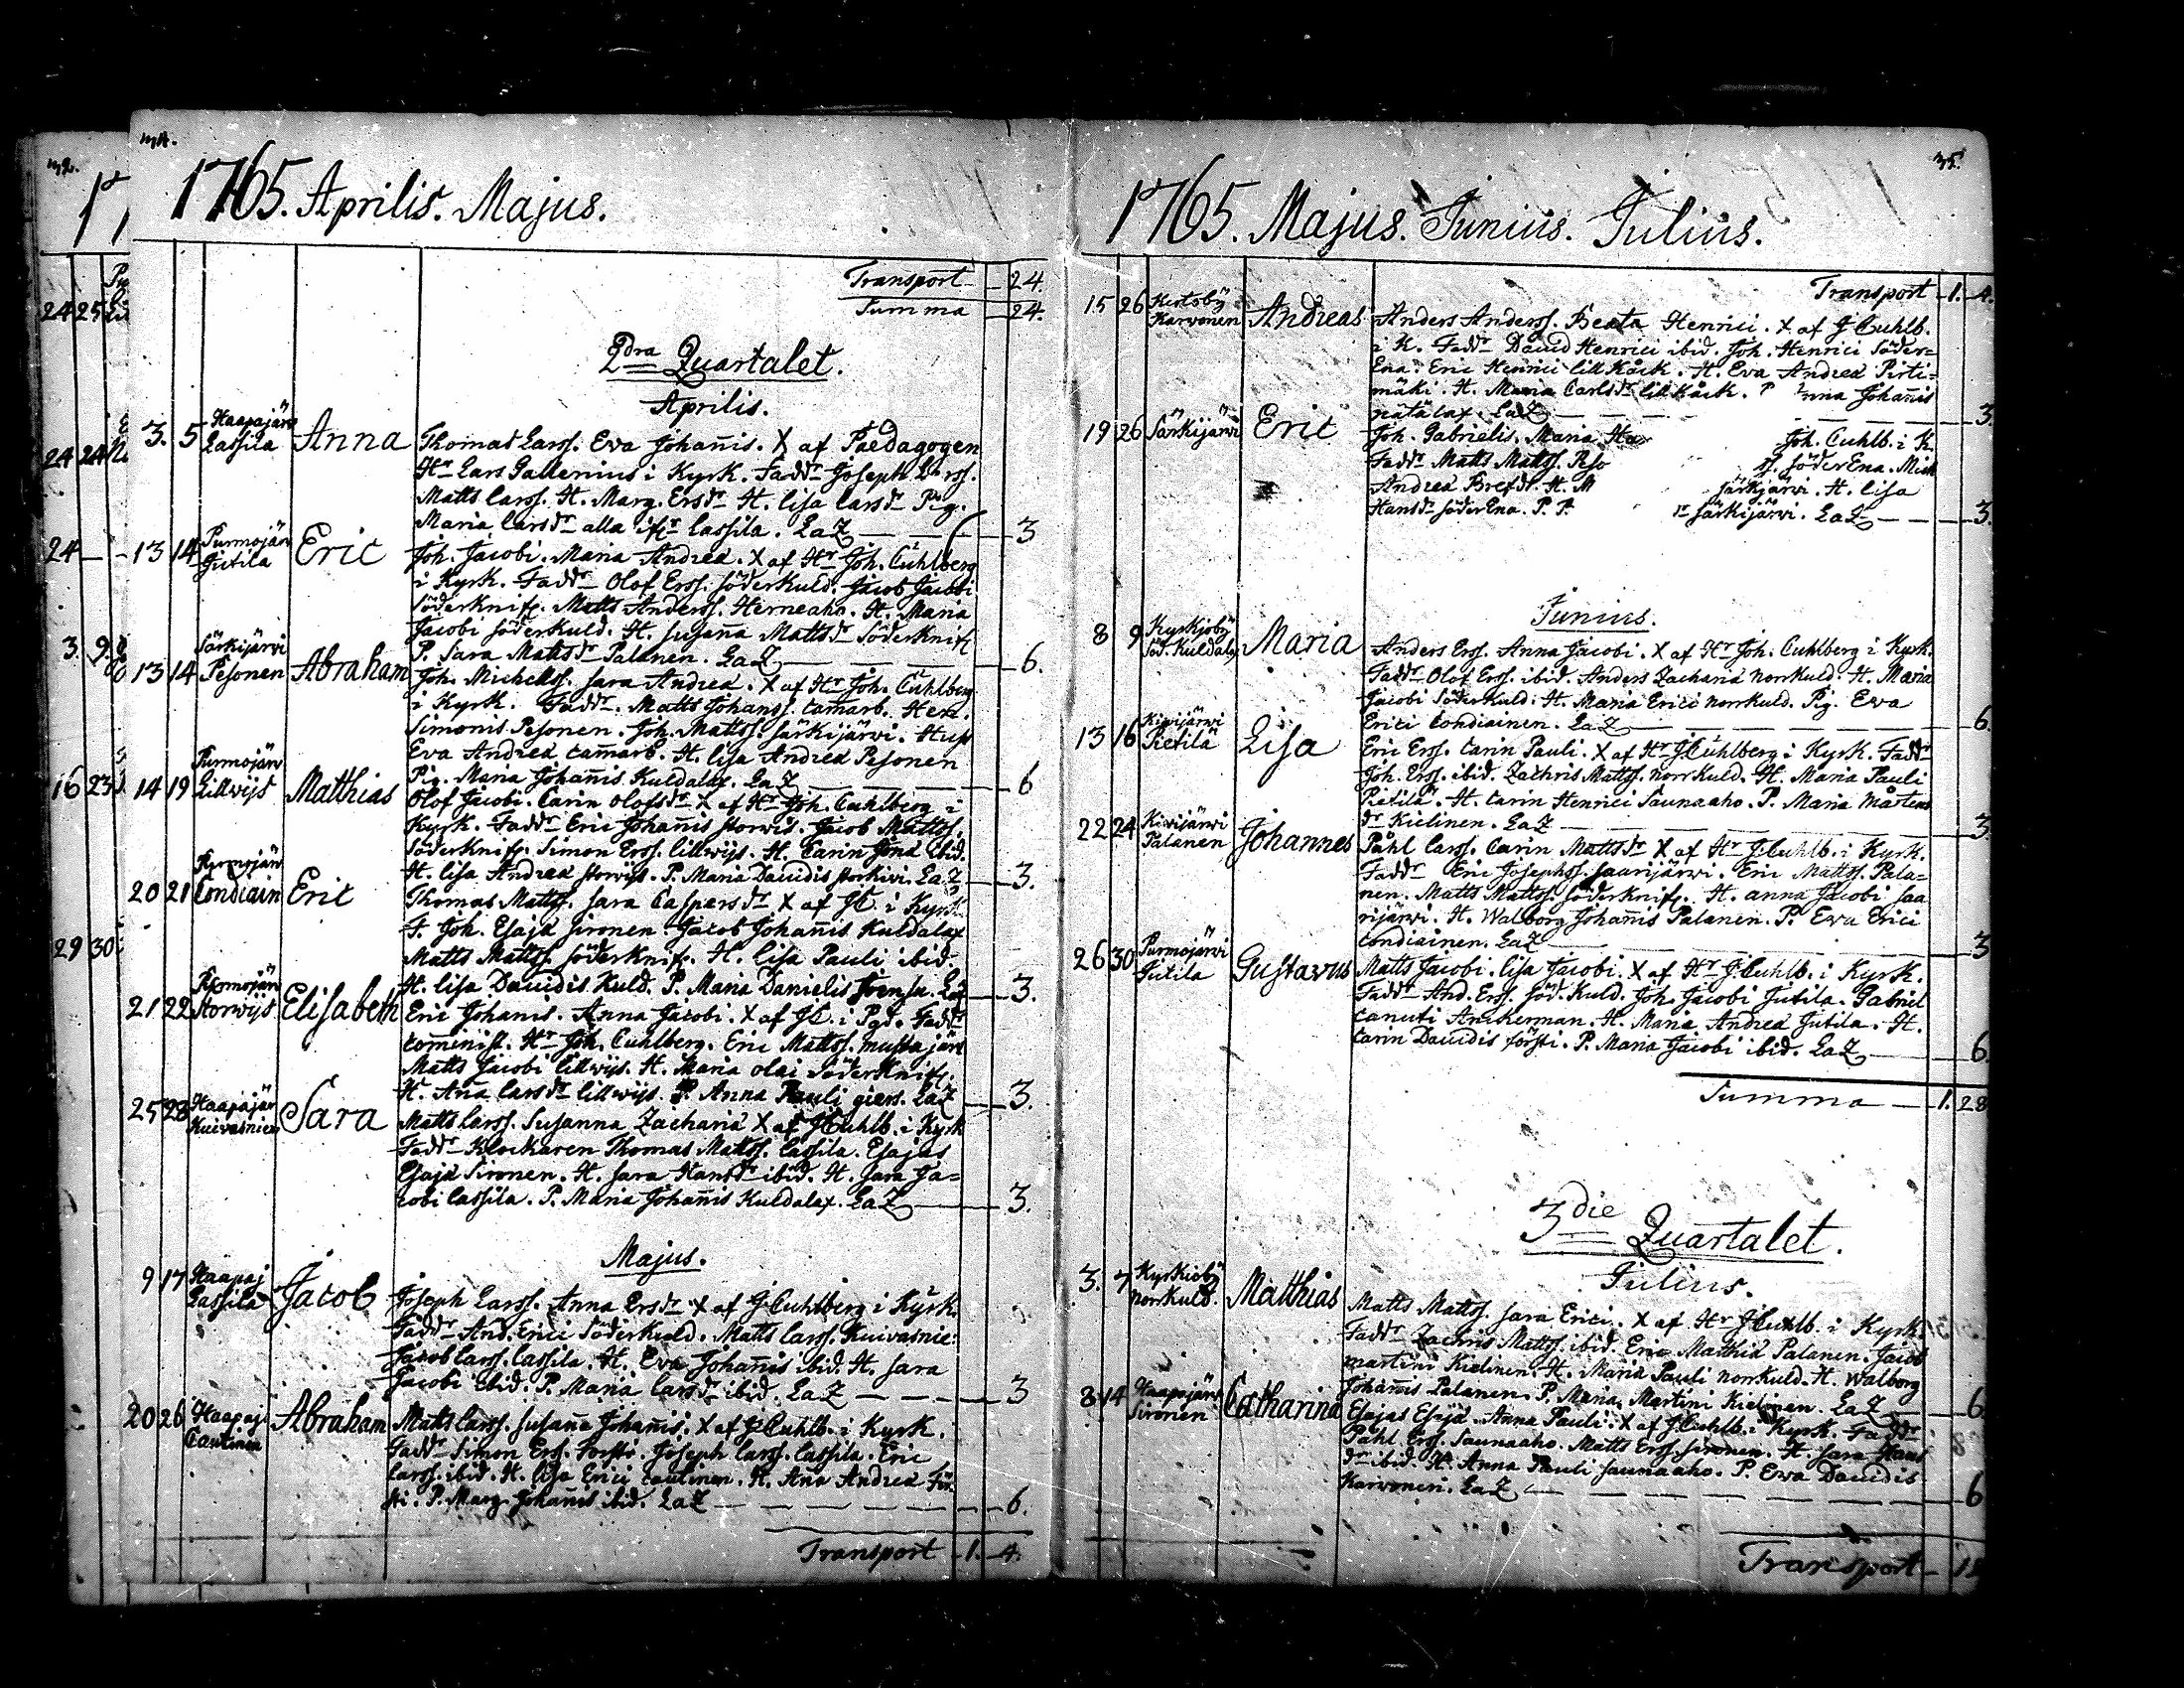 32.
34.
1765. Aprilis. Majus.
Transport 24.
Summa 24.
2dra Quartalet.
Aprilis.
3. 5 Haapajärv Lassila Anna Thomas Larss. Eva Johañis. X af Paedagogen
Hr Lars Gallenius i Kyrk. Faddr Joseph Larss.
Matts Larss. H. Marg. Ersdr H. Lisa Larsdr Pig.
Maria Larsdr alla ifr Lassila. LaZ 3
13 14 Purmojärv Jutila Eric Joh. Jacobi. Maria Andreæ. X af Hr Joh. Cuhlberg
i Kyrk. Faddr Olof Erss. Söderkuld. Jacob Jacobi
Söderknif. Matts Anderss. Herneaho. H. Maria
Jacobi Söderkuld. H. Susaña Mattsdr Söderknif
P. Sara Mattsdr Palanen. LaZ 6.
13 14 Särkijärvi Pesonen Abraham Joh. Michelss. Sara Andreæ. X af Hr Joh. Cuhlberg
i Kyrk. Faddr. Matts Johanss. Camarb. Hen.
Simonis Pesonen. Joh. Mattss. Särkijärvi. Hust
Eva Andreæ Camarb. H. Lisa Andreæ Pesonen
Pig. Maria Johañis Kuldalax. LaZ 6
14 19 Purmojärv Lillwijs Matthias Olof Jacobi. Carin Olofsdr X af Hr Joh. Cuhlberg i
Kyrk. Faddr Eric Johañis Storvis. Jacob Mattss.
Söderknif. Simon Erss. Lillwijs. H. Carin ibid.
H. Lisa Andreæ Storwijs. P. Maria Davidis LaZ 3.
20 21 Purmojärv Condiain Eric Thomas Mattss. Sara Caspersdr X af JC i Kyrk
F. Joh. Esajæ Sironen Jacob Johañis Kuldalax
Matts Mattss Söderknif. H. Lisa Pauli ibid.
H. Lisa Davidis Kuld. P. Maria Danielis LaZ 3.
21 22 Purmojärv Storwijs Elisabeth Eric Johanis. Anna Jacobi. X af JC i Faddr
Cominist. Hr Joh. Cuhlberg. Eric Mattss. Mustajärv
Matts Jacobi Lillwijs. H. Maria Olai Söderknif.
H. Aña Larsdr Lillwijs. P. Anna Pauli LaZ 3.
25 28 Haapajär Kuivasnien Sara Matts Larss. Susanna Zachariæ X af J Cuhlb. i Kyrk
Faddr Klockaren Thomas Mattss. Lassila. Esajas
Esajæ Sironen. H. Sara Hansdr ibid. H. Sara Ja=
cobi Lassila. P. Maria Johañis Kuldalax. LaZ 3.
Majus.
9 17 Haapaj Lassila Jacob Joseph Larss. Anna Ersdr X af J Cuhlberg i Kyrk.
Faddr And. Erici Söderkuld. Matts Larss. Kuivasnie:
Jacob Larss. Lassila. H. Eva Johañis ibid. H. Sara
Jacobi ibid. P. Maria Larsdr ibid. LaZ 3
20 26 Haapaj Cautinen Abraham Matts Larss. Susaña Johañis. X af J Cuhlb. i Kyrk.
Faddr Simon Erss. Forsti. Joseph Larss. Lassila. Eric
Larss. ibid. H. Lisa Erici Cautinen. H. Aña Andreæ För=
sti. P. Marg. Johañis ibid. LaZ 6.
Transport 1. 4.
35.
1765. Majus. Junius. Julius.
Transport 1. 4.
15 26 Karvonen Andreas Anders Anderss. Beata Henrici. X af J Cuhlb.
i K. Faddr David Henrici ibid. Joh. Henrici Söder=
Ena. Eric Henrici Lillkåck. H. Eva Andreæ Pirti=
mäki. H. Maria Carlsdr Lillkåck. P nna Johañis
LaZ 3.
19 26 Särkijärvi Eric Joh. Gabrielis. Maria Joh. Cuhlb. i K.
Faddr Matts Mattss. Söder Ena. Mich
Andreæ H. M Särkijärvi. H. Lisa
Hansdr SöderEna. P. P. Särkijärvi. LaZ 3.
Junius.
8 9 Kyrkjoby Söd.Kuldalax Maria Anders Erss. Anna Jacobi. X af Hr Joh. Cuhlberg i Kyrk.
Faddr Olof Erss. ibid. Anders Zachariæ Norrkuld. H. Maria
Jacobi Söderkuld. H. Maria Erici Norrkuld. Pig. Eva
Erici Condiainen. LaZ 6.
13 16 Kivijärvi Pietilä Lisa Eric Erss. Carin Pauli. X af Hr J Cuhlberg i Kyrk. Faddr
Joh. Erss. ibid. Zachris Mattss. Norrkuld. H. Maria Pauli
Pietilä. H. Carin Henrici Saunaaho. P. Maria Mårtens
dr Kielinen. LaZ 3.
22 24 Kivijärvi Palanen Johannes Påhl Larss. Carin Mattsdr X af Hr J Cuhlb. i Kyrk.
Faddr Eric Josephss. Saarijärvi. Eric Mattss. Pala=
nen. Matts Mattss. Söderknif. H. Anna Jacobi Saa
rijärvi. H. Walborg Johañis Palanen. P. Eva Erici
Condiainen. LaZ 3
26 30 Purmojärvi Jutila Gustavus Matts Jacobi. Lisa Jacobi. X af Hr J Cuhlb. i Kyrk.
Faddr And. Erss. Söd.Kuld. Joh. Jacobi Jutila. Gabriel
Canuti Anckerman. H. Maria Andreæ Jutila. H.
Carin Davidis Försti. P. Maria Jacobi ibid. LaZ 6.
Summa 1. 28
3die Quartalet.
Julius.
3. 7 Kyrkioby Norrkuld. Matthias Matts Mattss. Sara Erici. X af Hr J Cuhlb. i Kyrk.
Faddr Zachris Mattss. ibid. Eric Matthiæ Palanen. Jacob
Martini Kielinen. H. Maria Pauli Norrkuld. H. Walborg
Johañis Palanen. P. Maria Martini Kielinen. LaZ 6
8 14 Haapajärv Sironen Catharina Esajas Esajæ. Anna Pauli. X af J Cuhlb. i Kyrk. Faddr
Påhl Erss. Saunaaho. Matts Erss. Sironen. H. Sara Hans
dr ibid. H. Anna Pauli Saunaaho. P. Eva Davidis
Karvonen. LaZ 6
Transport